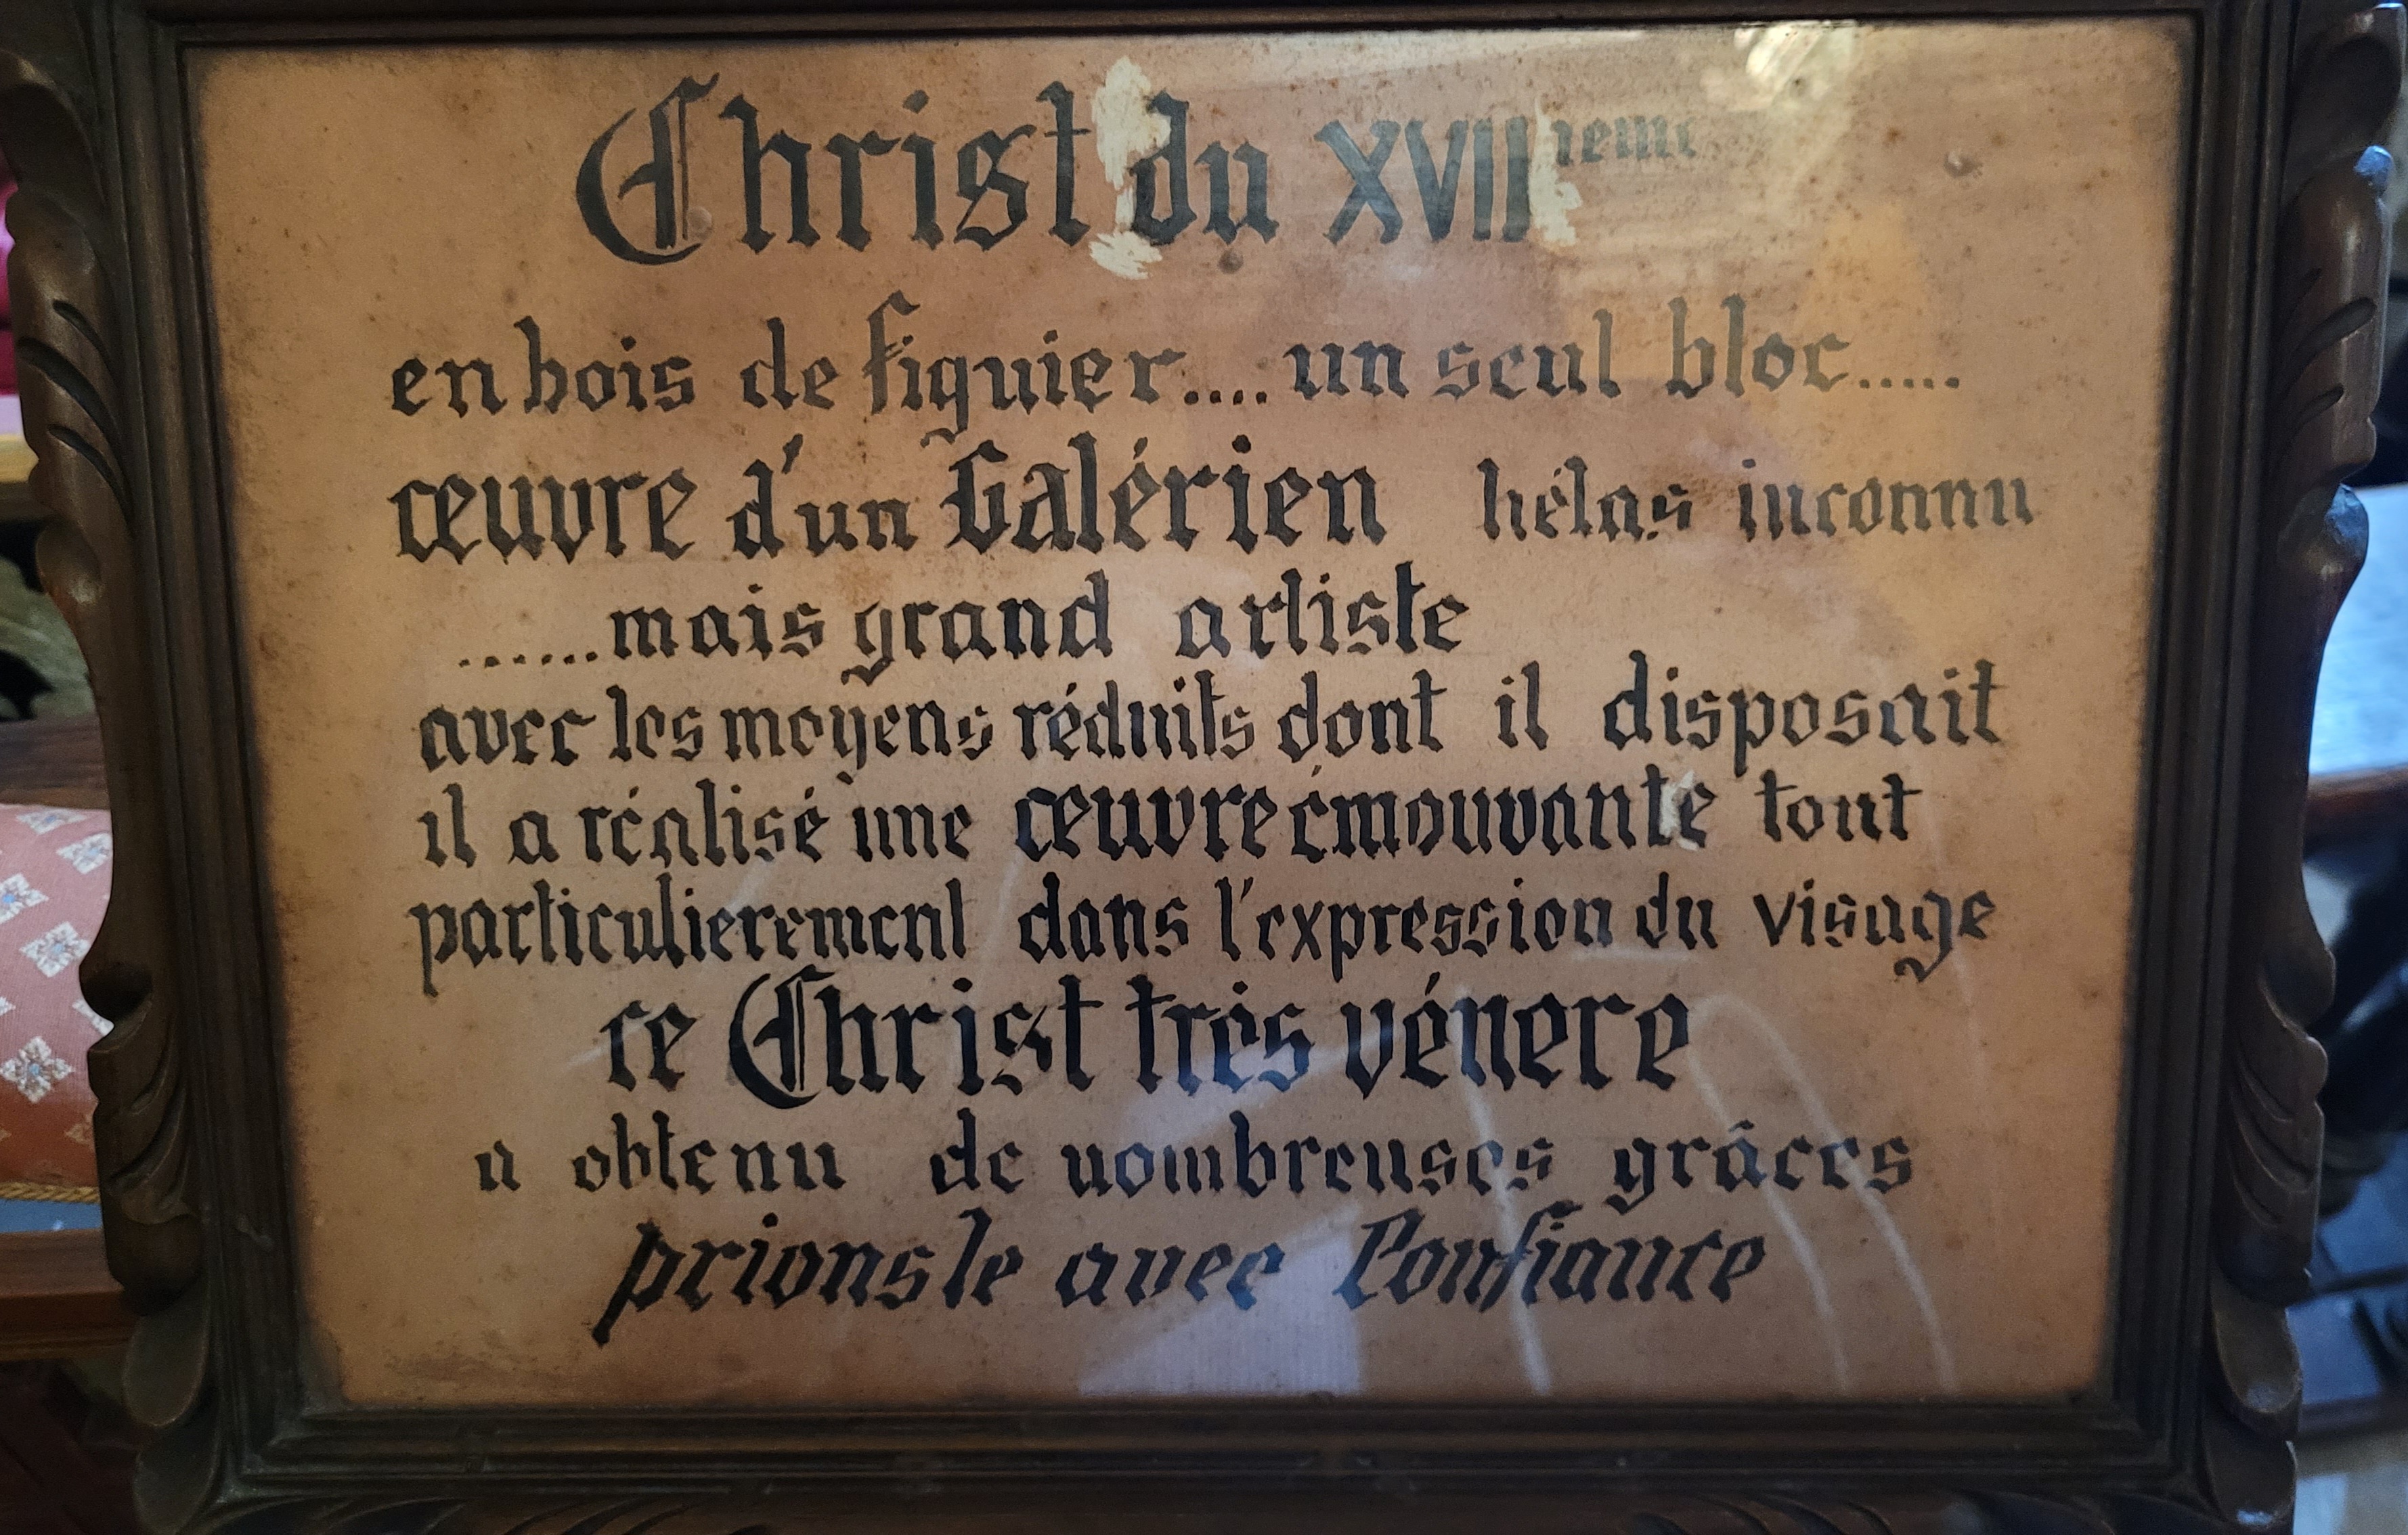 Christ du XVII ième
en bois de figuier.... un seul bloc.....
œuvre d'un Galérien hélas inconnu
......mais grand artiste
avec les moyens réduits dont il disposait
il a réalisé une œuvre émouvante tout
particulierement dans l'expression du visage
ce Christ très vénere
a obtenu de nombreuses grâces
prions le avec Confiance